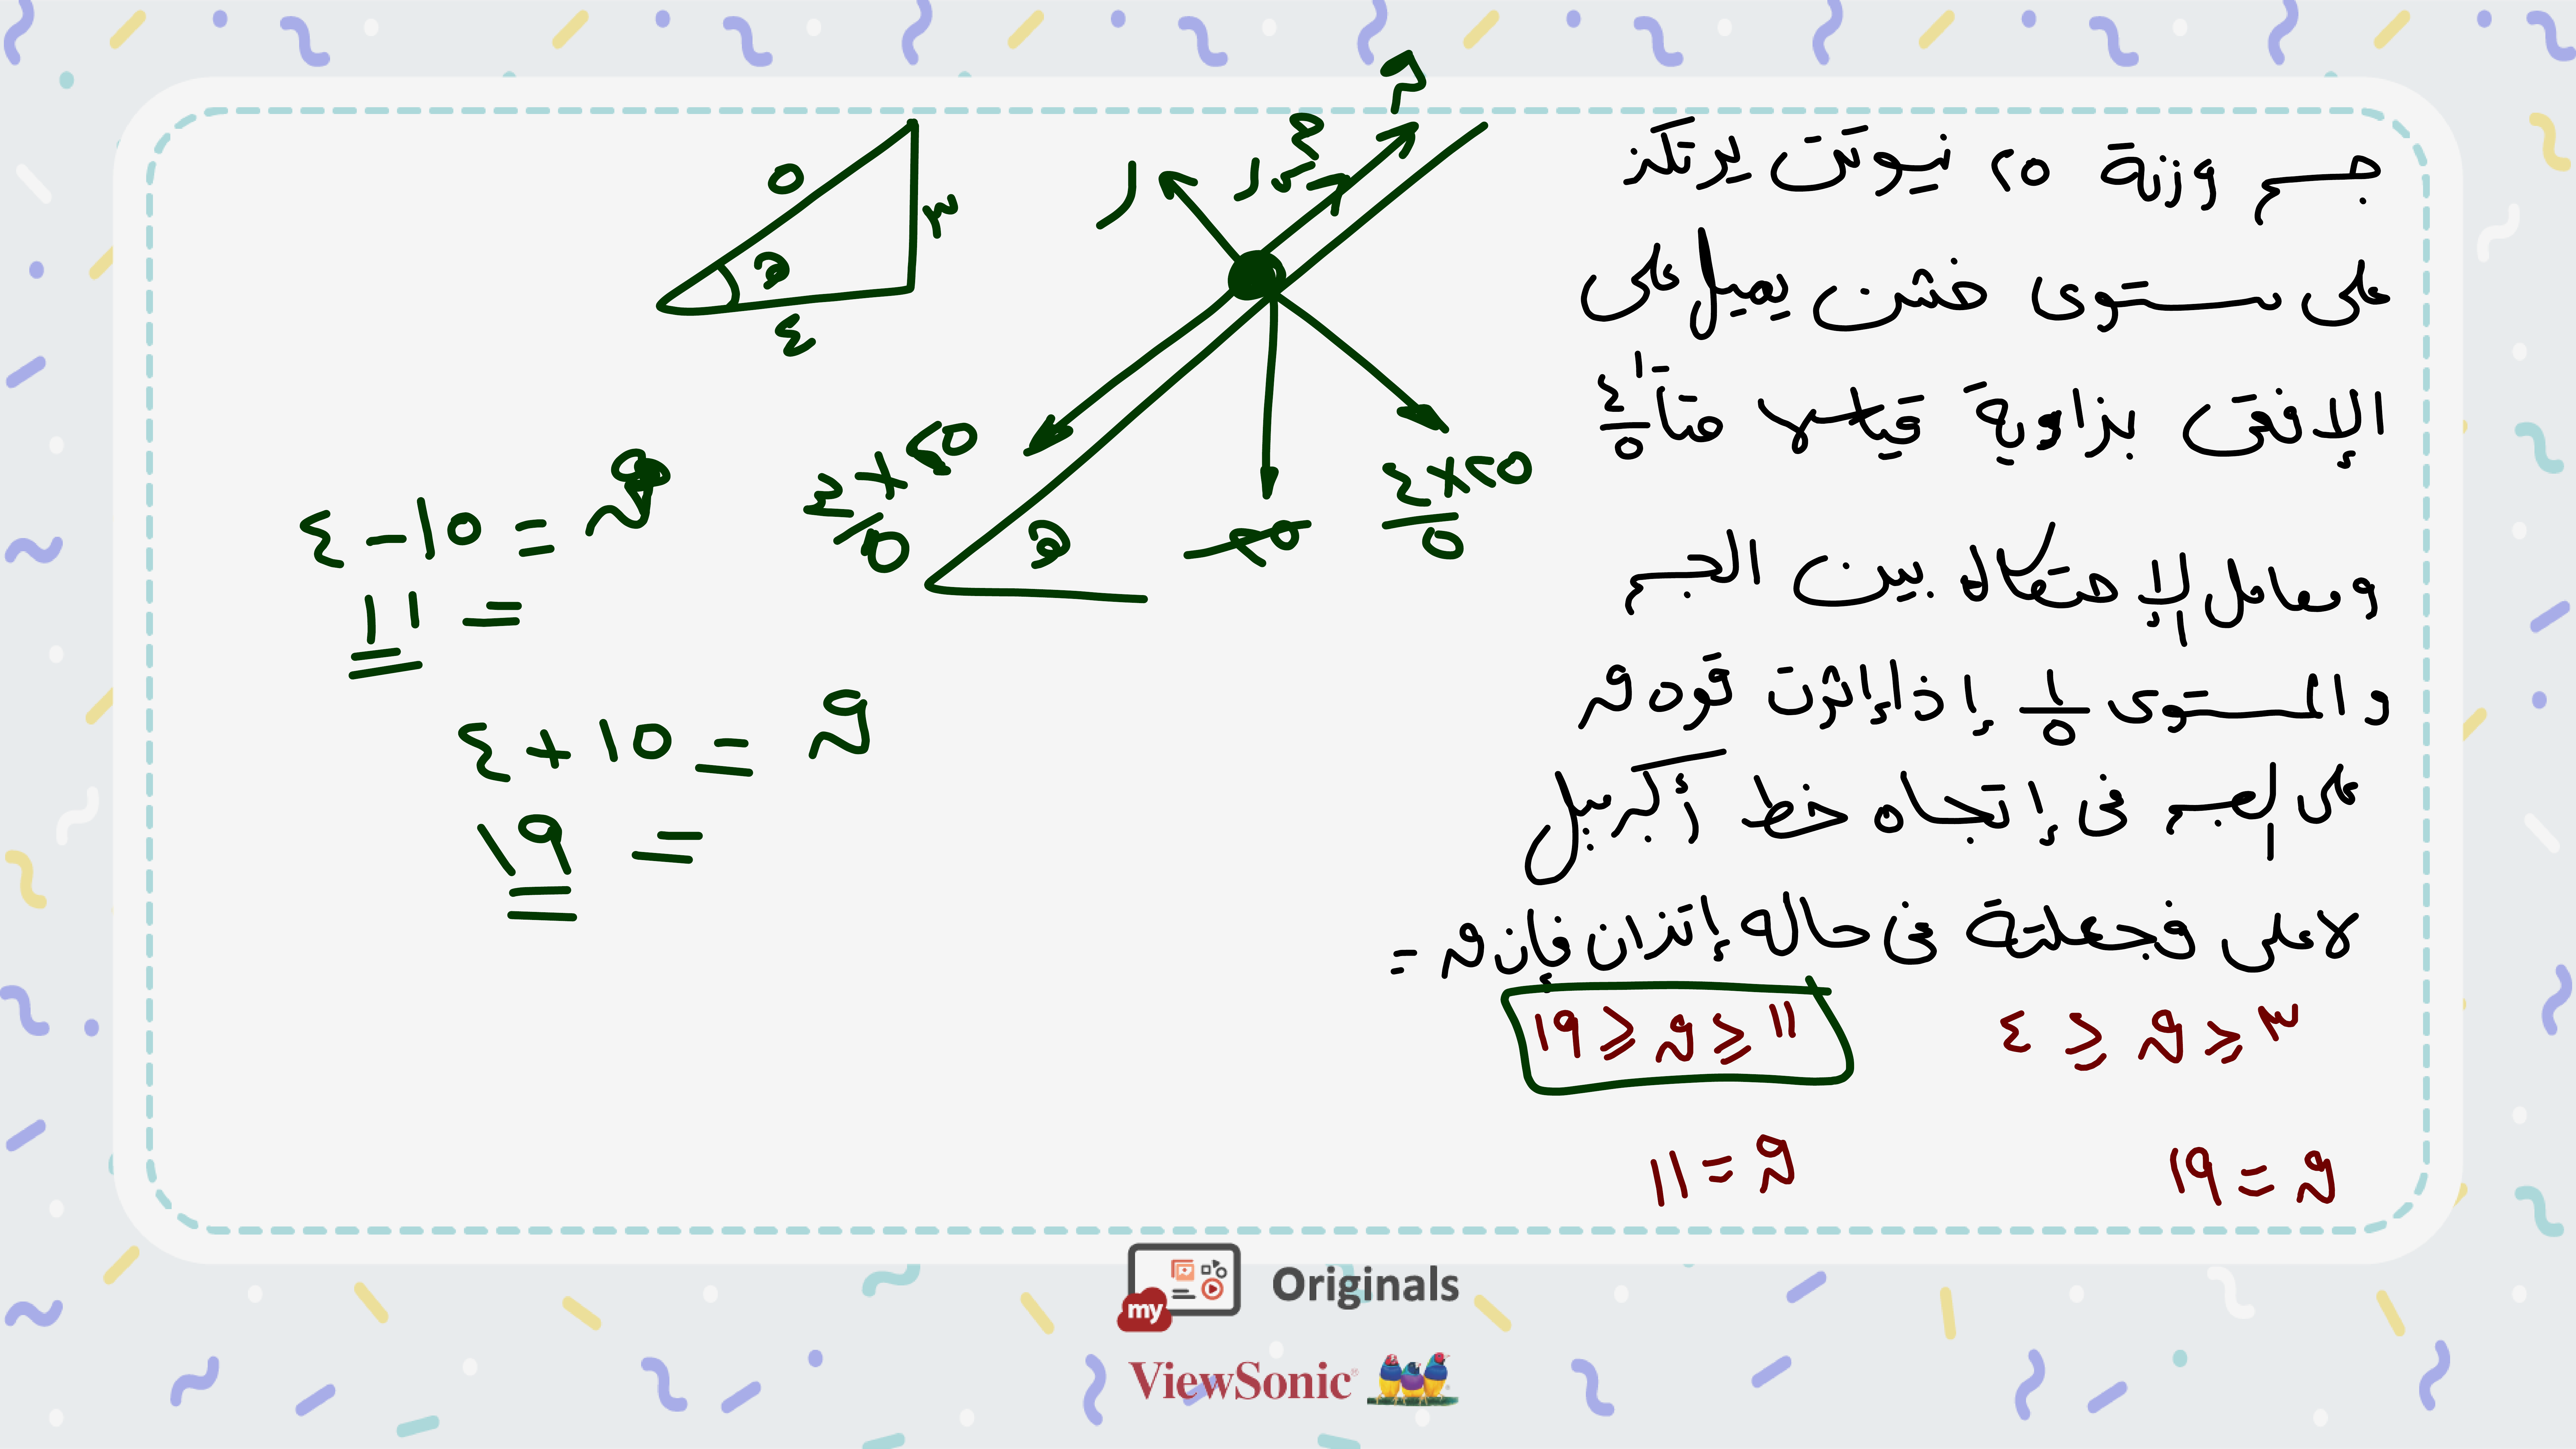 جسم وزنة ٢٥ نيوتن يرتكز
على مستوى خشن يميل على
الإفقى بزاوية قياسها جتا⁻¹ ٤/٥
ومعامل الإحتكاك بين الجسم
والمستوى ١/٥ إذا إثرت قوه ق
على الجسم فى إتجاه خط أكبر ميل
لاعلى فجعلتة فى حاله إتزان فإن ق =
٣ ≤ ق ≤ ٤
١١ ≤ ق ≤ ١٩
ق = ١٩
ق = ١١
٥
٣
٤
هـ
ر
ق
٢٥ × ٣/٥
هـ
٢٥
٢٥ × ٤/٥
ق = ١٥ - ٤
= ١١
ق = ١٥ + ٤
= ١٩
my Originals
ViewSonic